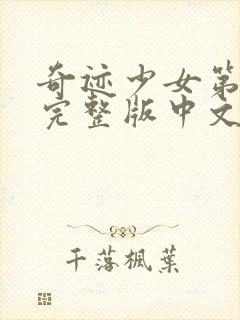 奇迹少女第
完整版中文
千落枫叶